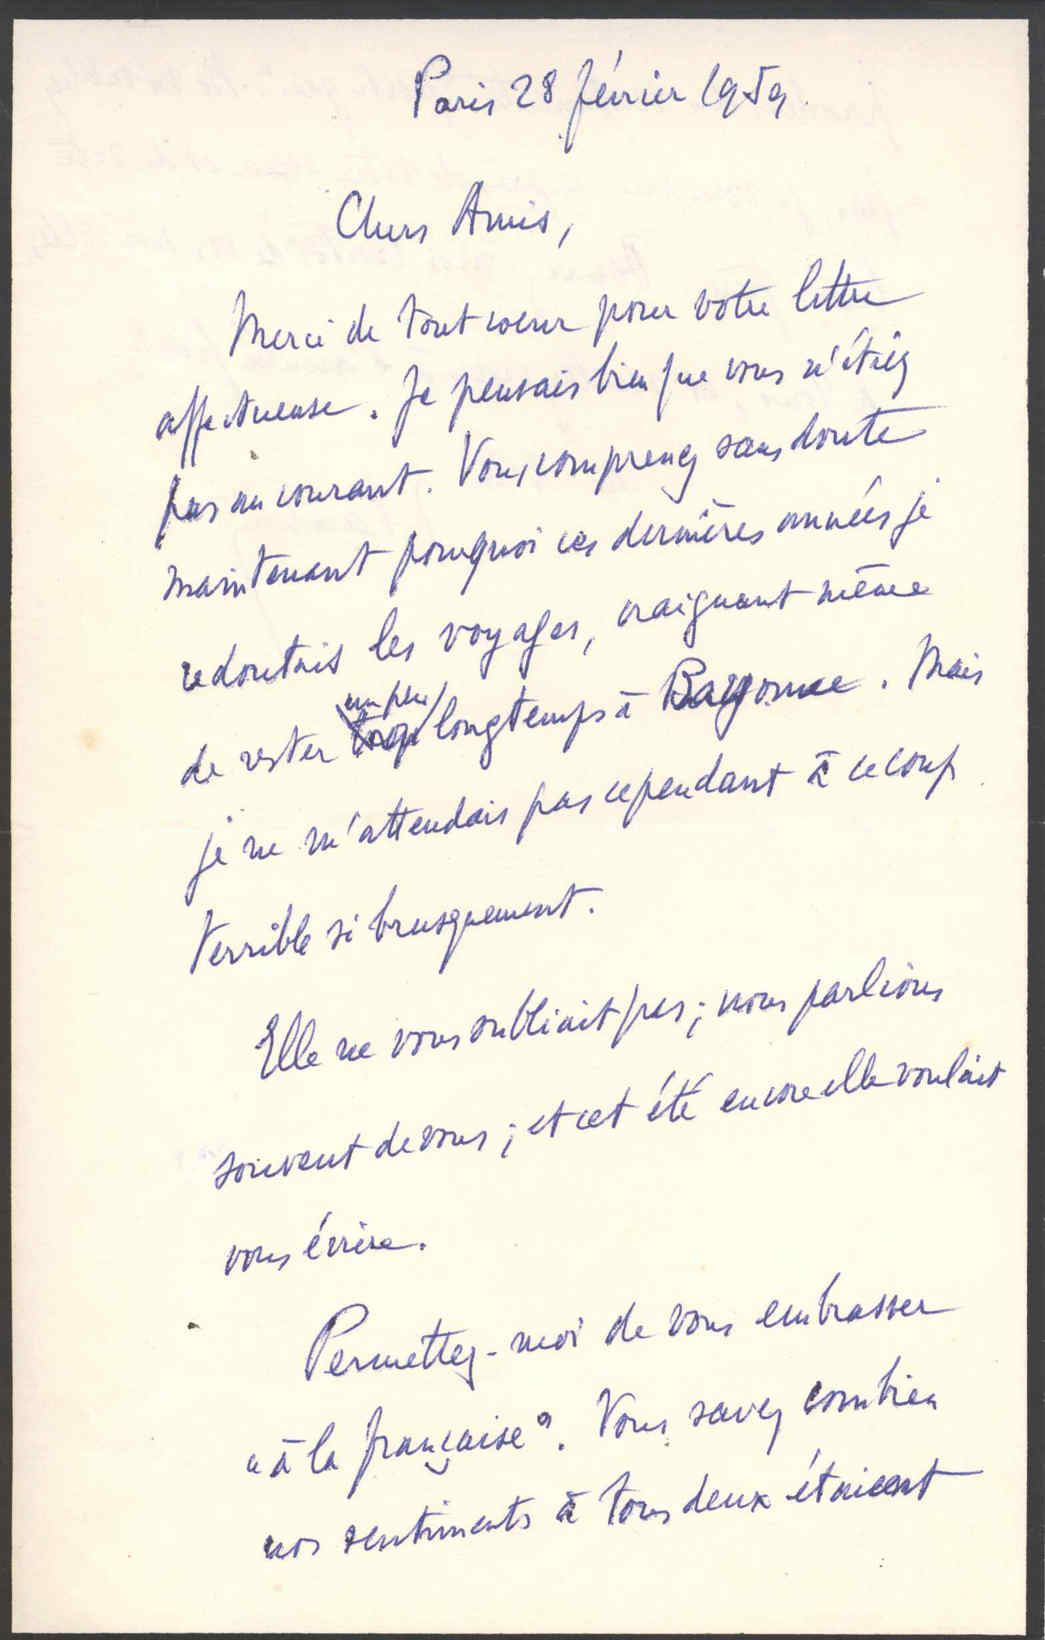 Paris 28 février 1959.
Chers Amis,
Merci de tout coeur pour votre lettre
affectueuse. Je pensais bien que vous n'étiez
pas au courant. Vous comprenez sans doute
maintenant pourquoi ces dernières années je
redoutais les voyages, craignant même
un peu
de rester trop longtemps à Bayonne. Mais
je ne m'attendais pas cependant à ce coup
terrible si brusquement.
Elle ne vous oubliait pas ; nous parlions
souvent de vous ; et cet été encore elle voulait
vous écrire.
Permettez-moi de vous embrasser
"à la française". Vous savez combien
nos sentiments à tous deux étaient